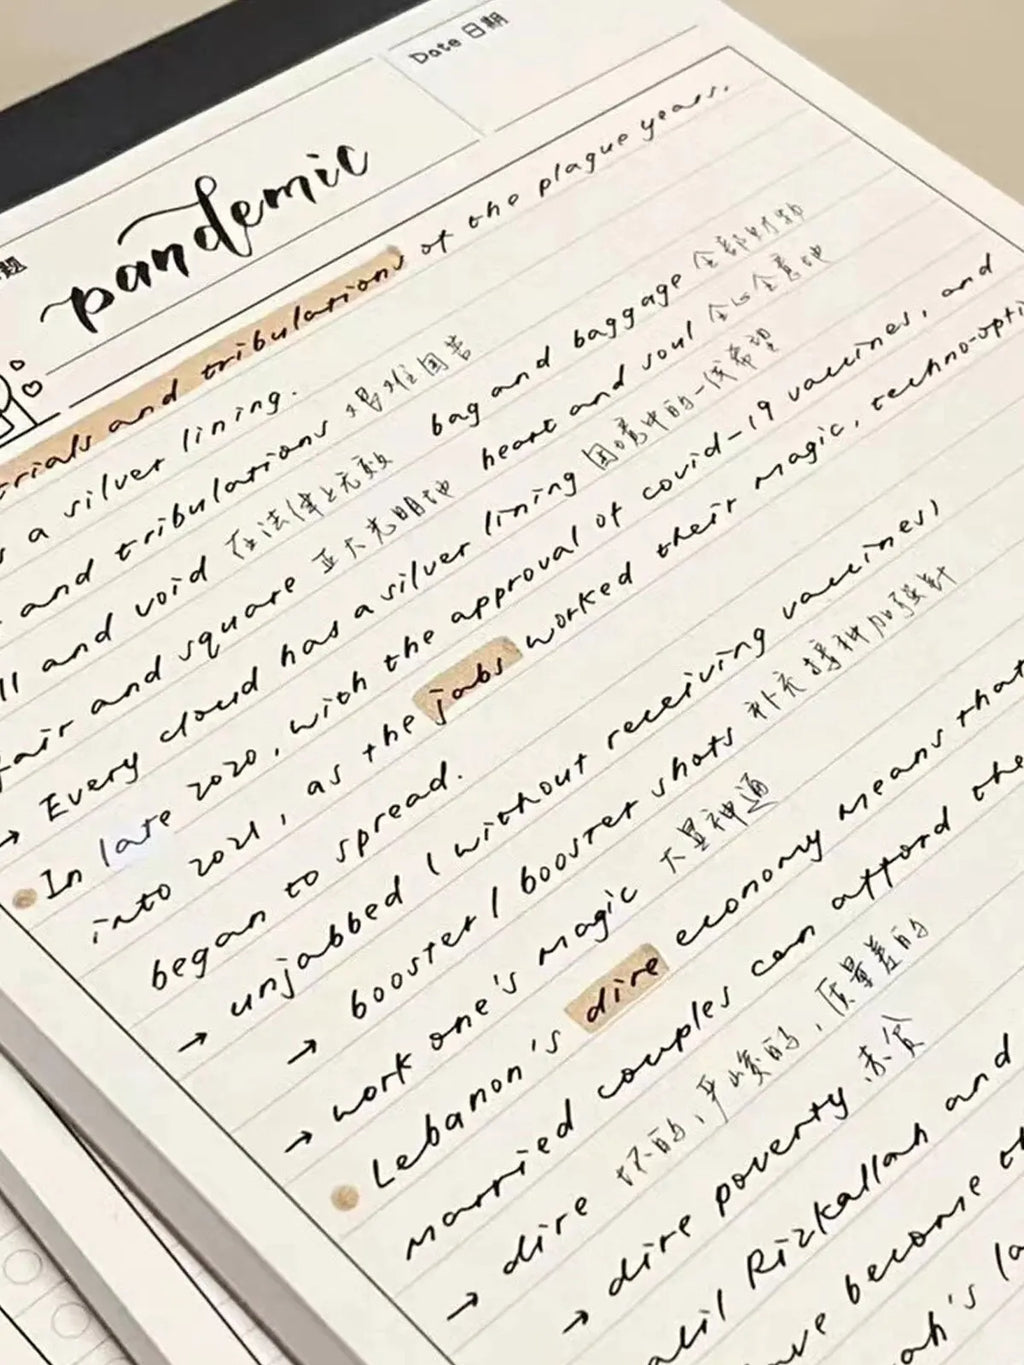 Date 日期
题
pandemic
trials and tribulations of the plague years.
a silver lining.
and tribulations 艰难困苦
bag and baggage 全部财物
and void 在法律上无效
heart and soul 全心全意地
fair and square 正大光明地
→ Every cloud has a silver lining 困境中的一线希望
In late 2020, with the approval of covid-19 vaccines, and
into 2021, as the jabs worked their magic, techno-opti
began to spread.
→ unjabbed (without receiving vaccines)
→ booster / booster shots 补充接种加强针
→ work one's magic 大显神通
Lebanon's dire economy means that
married couples can afford the
→ dire 坏的,严峻的,质量差的
→ dire poverty 赤贫
Rizkallah and
become